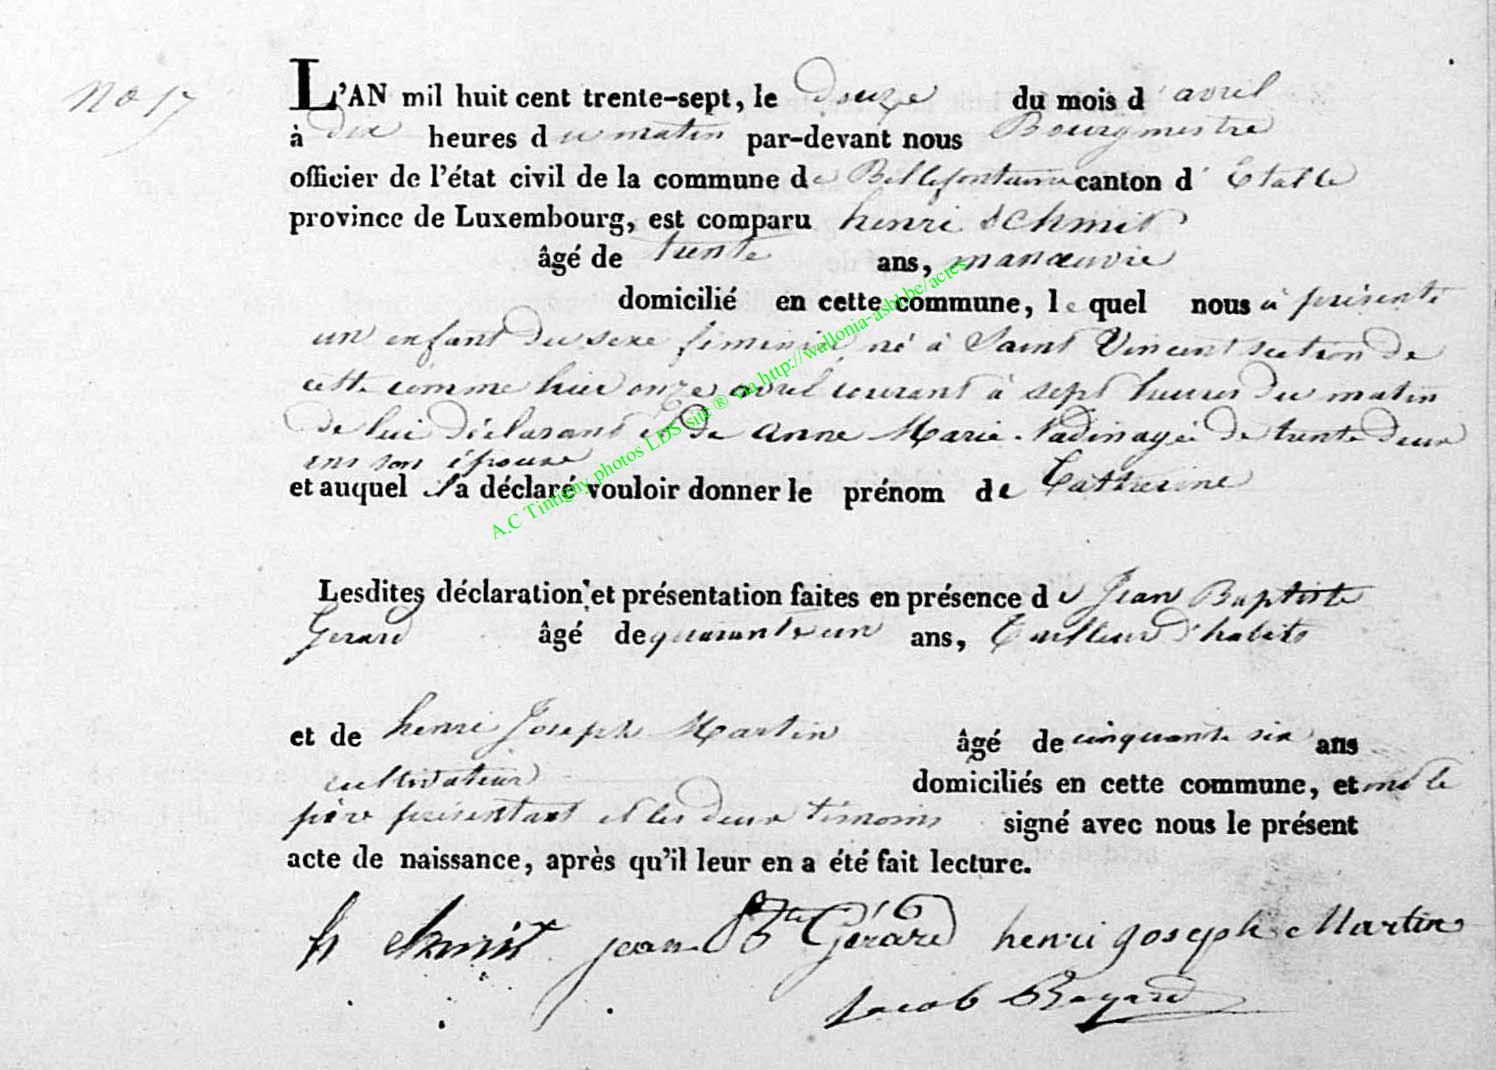 No 17
L'AN mil huit cent trente-sept, le douze du mois d'avril
à dix heures du matin par-devant nous Bourgmestre
officier de l'état civil de la commune de Bellefontaine canton d'Etalle
province de Luxembourg, est comparu henri Schmit
âgé de trente ans, manœuvre
domicilié en cette commune, lequel nous a présenté
un enfant du sexe féminin né à Saint Vincent section de
cette comme hier onze avril courant à sept heures du matin
de lui déclarant et de Anne Marie âgée de trente deux
ans son épouse
et auquel il a déclaré vouloir donner le prénom de Catherine
Lesdites déclaration et présentation faites en présence de Jean Baptiste
Gerard âgé de quarante un ans, Tailleur d'habits
et de henri Joseph Martin âgé de cinquante six ans
cultivateur domiciliés en cette commune, et ont le
père présentant et les deux témoins signé avec nous le présent
acte de naissance, après qu'il leur en a été fait lecture.
h Schmit jean Bte Gérard henri joseph Martin
Jacob Bayard
A.C Tintigny photos LDS site ® via http://wallonia-asbl.be/actes